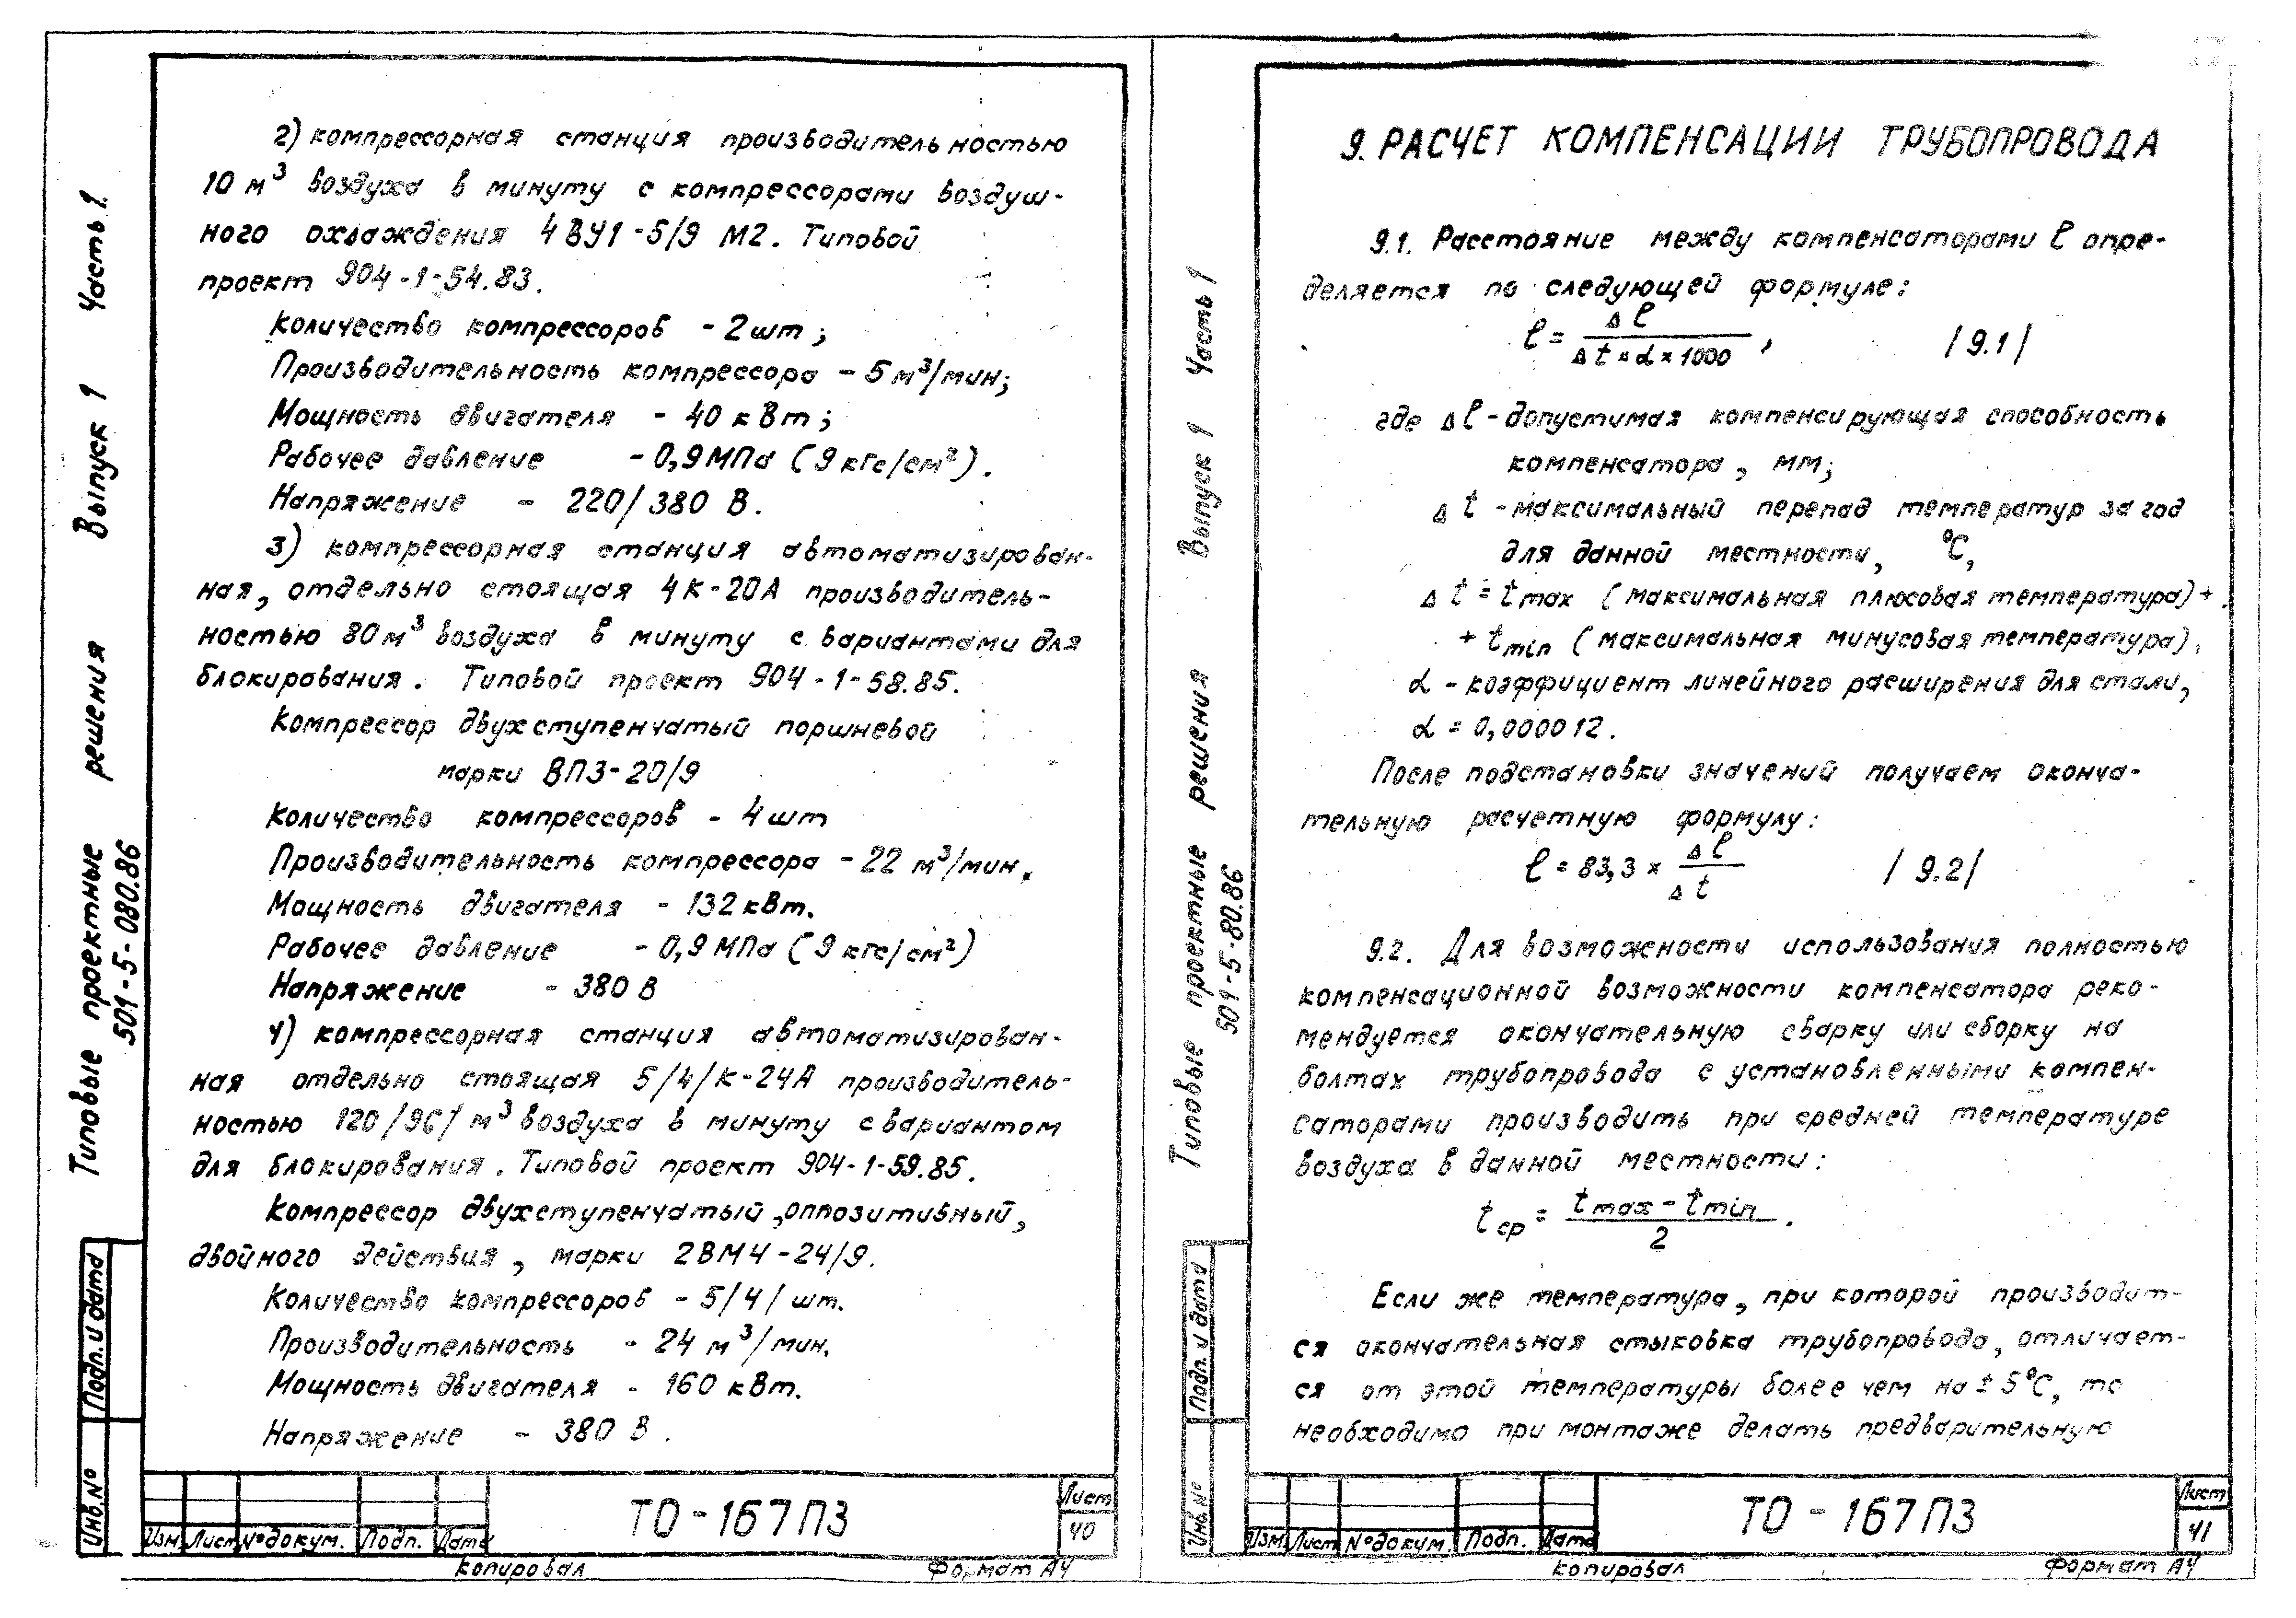 2) компрессорная станция производительностью
10 м³ воздуха в минуту с компрессорами воздуш-
ного охлаждения 4ВУ1-5/9 М2. Типовой
проект 904-1-54.83.
Количество компрессоров - 2 шт;
Производительность компрессора - 5 м³/мин;
Мощность двигателя - 40 кВт;
Рабочее давление - 0,9 МПа (9 кгс/см²).
Напряжение - 220/380 В.
3) компрессорная станция автоматизирован-
ная, отдельно стоящая 4К-20А производитель-
ностью 80 м³ воздуха в минуту с вариантами для
блокирования. Типовой проект 904-1-58.85.
Компрессор двухступенчатый поршневой
марки ВП3-20/9
Количество компрессоров - 4 шт
Производительность компрессора - 22 м³/мин.
Мощность двигателя - 132 кВт.
Рабочее давление - 0,9 МПа (9 кгс/см²)
Напряжение - 380 В
4) компрессорная станция автоматизирован-
ная отдельно стоящая 5/4/К-24А производитель-
ностью 120/96/ м³ воздуха в минуту с вариантом
для блокирования. Типовой проект 904-1-59.85.
Компрессор двухступенчатый, оппозитивный,
двойного действия, марки 2ВМ4-24/9.
Количество компрессоров - 5/4/ шт.
Производительность - 24 м³/мин.
Мощность двигателя - 160 кВт.
Напряжение - 380 В.
Типовые проектные решения Выпуск 1 Часть 1.
501-5-080.86
Подп. и дата
Инв. №
Изм. Лист № докум. Подп. Дата
ТО-167 ПЗ
Лист
40
Копировал Формат А4
9. РАСЧЕТ КОМПЕНСАЦИИ ТРУБОПРОВОДА
9.1. Расстояние между компенсаторами ℓ опре-
деляется по следующей формуле:
ℓ = Δℓ / (Δt × α × 1000), /9.1/
где Δℓ - допустимая компенсирующая способность
компенсатора, мм;
Δt - максимальный перепад температур за год
для данной местности, °С,
Δt = tmax (максимальная плюсовая температура) +
+ tmin (максимальная минусовая температура),
α - коэффициент линейного расширения для стали,
α = 0,000012.
После подстановки значений получаем оконча-
тельную расчетную формулу:
ℓ = 83,3 × Δℓ / Δt /9.2/
9.2. Для возможности использования полностью
компенсационной возможности компенсатора реко-
мендуется окончательную сварку или сборку на
болтах трубопровода с установленными компен-
саторами производить при средней температуре
воздуха в данной местности:
tср = (tmax - tmin) / 2.
Если же температура, при которой производит-
ся окончательная стыковка трубопровода, отличает-
ся от этой температуры более чем на ± 5°С, то
необходимо при монтаже делать предварительную
Типовые проектные решения Выпуск 1 Часть 1
501-5-80.86
Подп. и дата
Инв. №
Изм. Лист № докум. Подп. Дата
ТО-167 ПЗ
Лист
41
Копировал Формат А4